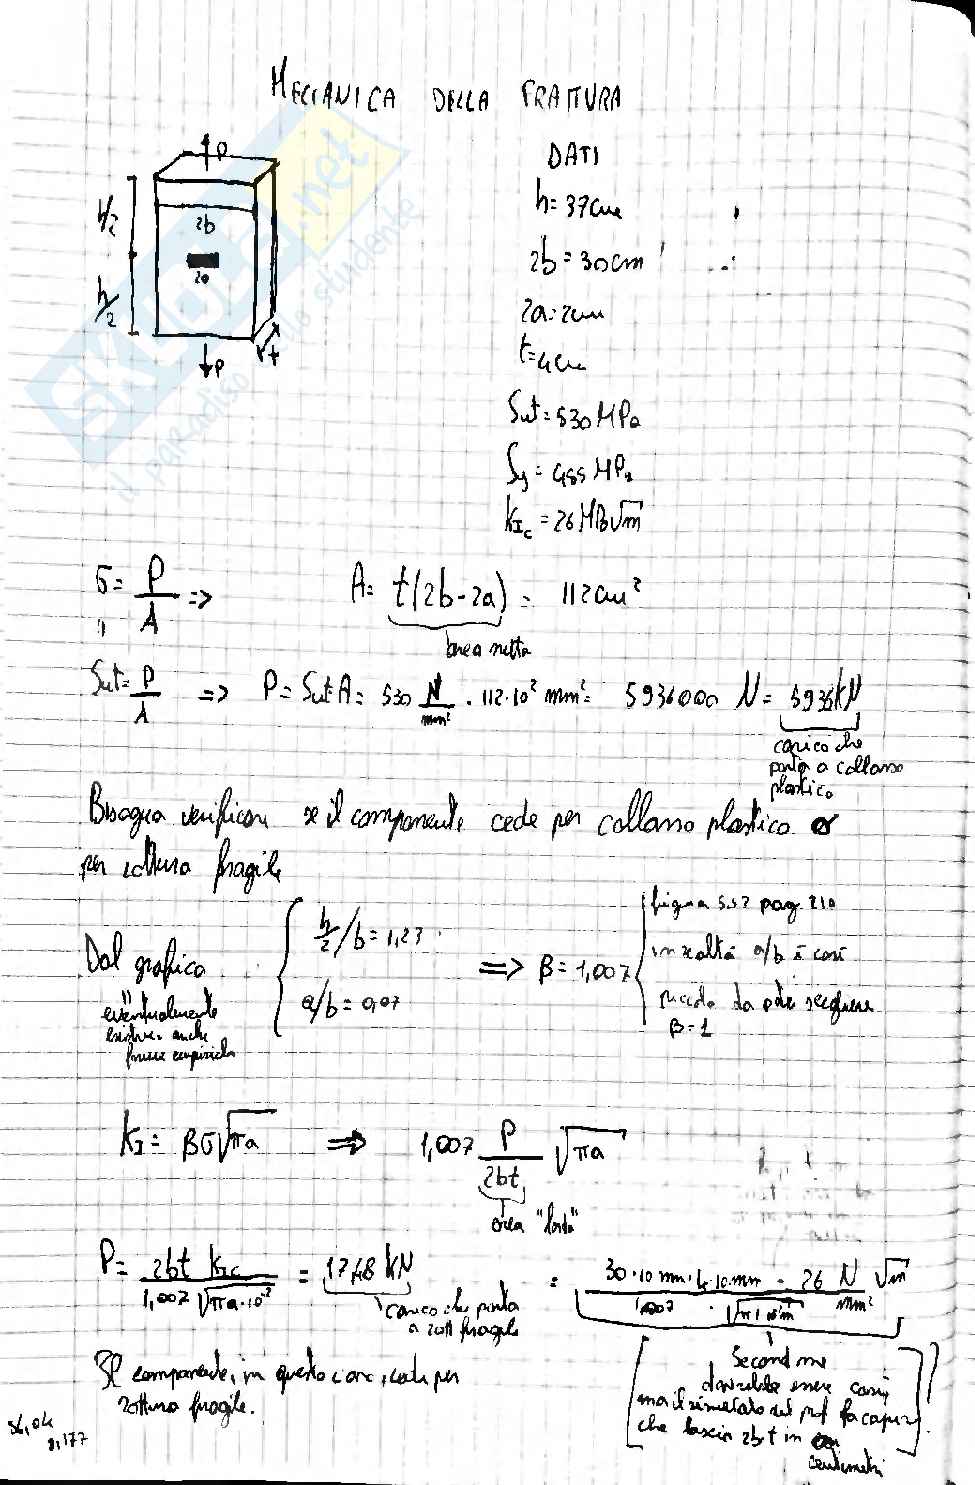 MECCANICA DELLA FRATTURA
P
DATI
h = 37cm
h/2
2b
2b = 30cm
2a
2a = 2cm
h/2
t = 4cm
t
P
Sut = 530 MPa
Sy = 455 MPa
KIc = 26 MPa√m
SKUOLA.net
il paradiso dello studente
σ = P/A => A = t(2b-2a) = 112cm²
area netta
Sut = P/A => P = Sut·A = 530 N/mm² · 112·10² mm² = 5936000 N = 5936 kN
carico che
porta a collasso
plastico
Bisogna verificare se il componente cede per collasso plastico o
per rottura fragile
Dal grafico
eventualmente
esistono anche
formule empiriche
h/2/b = 1,23
a/b = 0,07
=> β = 1,007
figura 5.17 pag. 210
in realtà a/b è così
piccolo da poter scegliere
β = 1
KI = βσ√πa => 1,007 P/2bt √πa
area "lorda"
P = 2bt KIC / 1,007 √πa·10⁻² = 1748 kN = 30·10 mm · 4·10 mm · 26 N/mm² √m / 1,007 · √π 1·10⁻² m
carico che porta
a rott fragile
Il componente, in questo caso, cede per
rottura fragile.
Secondo me
dovrebbe essere così,
ma il risultato del prof fa capire
che lascia 2b·t in
centimetri
??